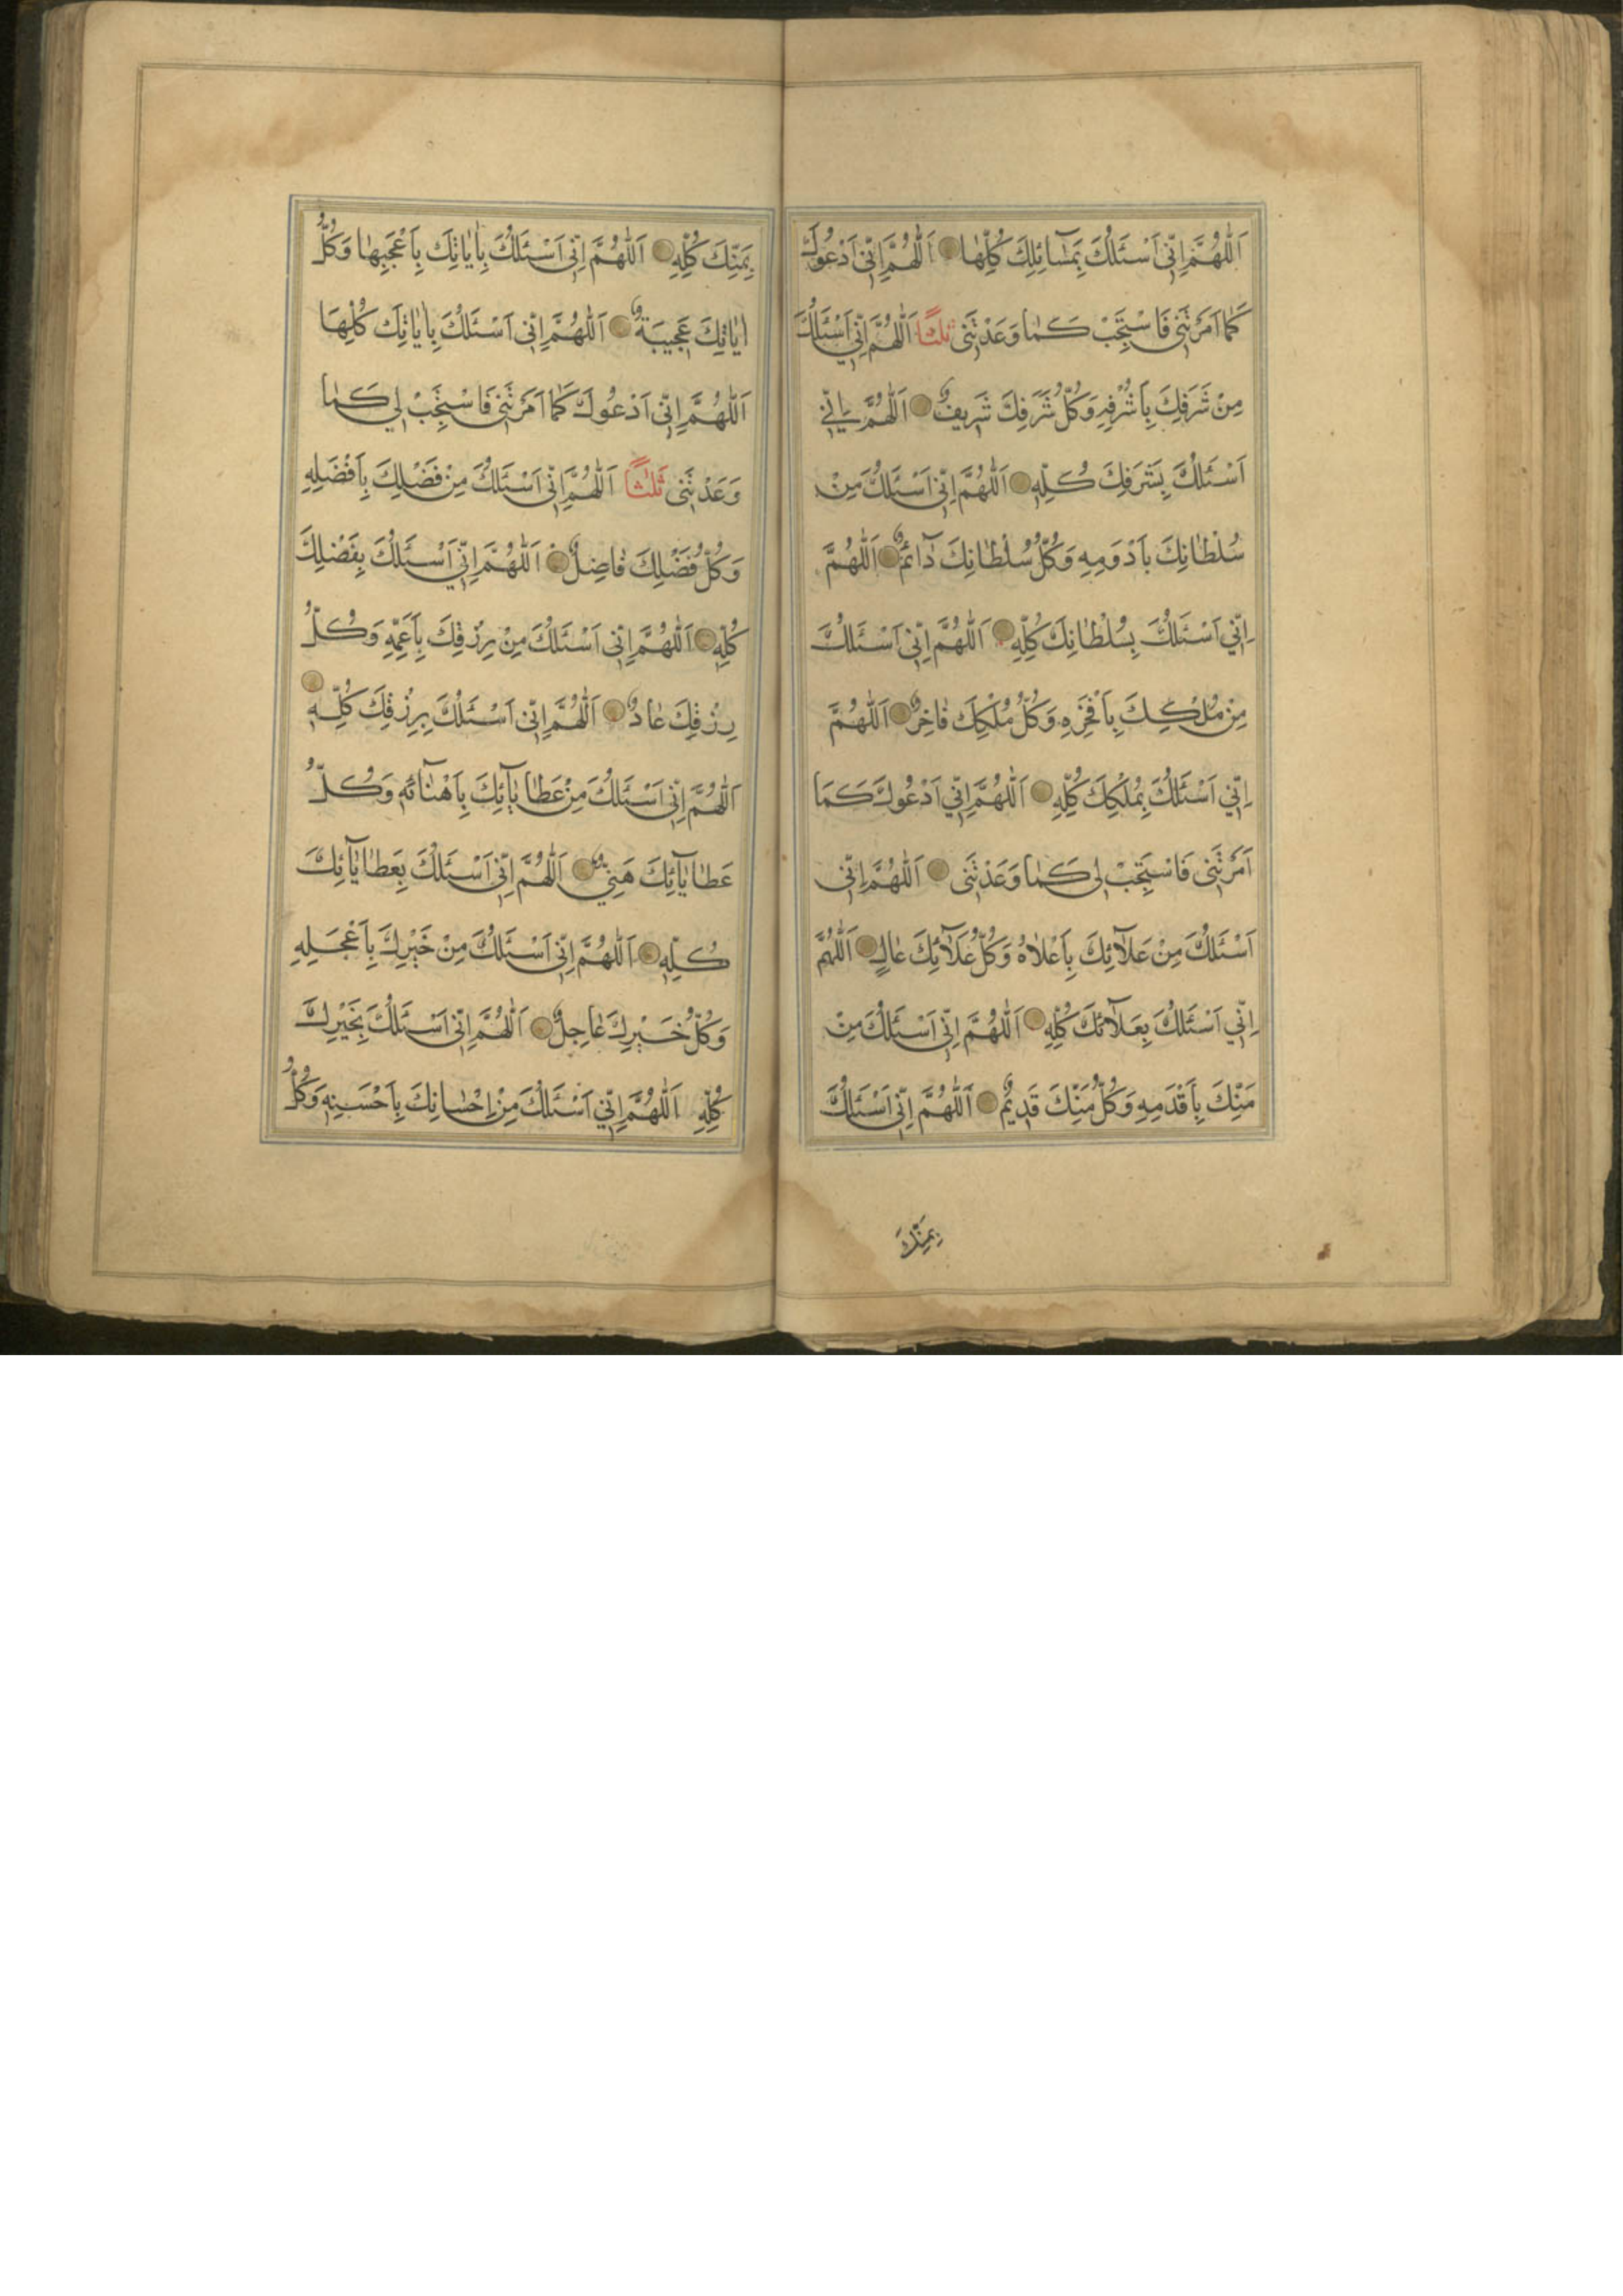 اَللّٰهُمَّ اِنّٖى اَسْئَلُكَ بِمَسٰٓائِلِكَ كُلِّهٰا اَللّٰهُمَّ اِنّٖى اَدْعُوكَ
كَمٰا اَمَرْتَنٖى فَاسْتَجِبْ كَمٰا وَعَدْتَنٖى ثَلٰثًا اَللّٰهُمَّ اِنّٖى اَسْئَلُكَ
مِنْ شَرَفِكَ بِاَشْرَفِهِ وَكُلُّ شَرَفِكَ شَرٖيفٌ اَللّٰهُمَّ اِنّٖى
اَسْئَلُكَ بِشَرَفِكَ كُلِّهٖ اَللّٰهُمَّ اِنّٖى اَسْئَلُكَ مِنْ
سُلْطٰانِكَ بِاَدْوَمِهِ وَكُلُّ سُلْطٰانِكَ دٰٓائِمٌ اَللّٰهُمَّ
اِنّٖى اَسْئَلُكَ بِسُلْطٰانِكَ كُلِّهٖ اَللّٰهُمَّ اِنّٖى اَسْئَلُكَ
مِنْ مُلْكِكَ بِاَفْخَرِهِ وَكُلُّ مُلْكِكَ فٰاخِرٌ اَللّٰهُمَّ
اِنّٖى اَسْئَلُكَ بِمُلْكِكَ كُلِّهٖ اَللّٰهُمَّ اِنّٖى اَدْعُوكَ كَمَا
اَمَرْتَنٖى فَاسْتَجِبْ لٖى كَمٰا وَعَدْتَنٖى اَللّٰهُمَّ اِنّٖى
اَسْئَلُكَ مِنْ عَلَآئِكَ بِاَعْلٰاهُ وَكُلُّ عَلَآئِكَ عٰالٍ اَللّٰهُمَّ
اِنّٖى اَسْئَلُكَ بِعَلَآئِكَ كُلِّهٖ اَللّٰهُمَّ اِنّٖى اَسْئَلُكَ مِنْ
مَنِّكَ بِاَقْدَمِهِ وَكُلُّ مَنِّكَ قَدٖيمٌ اَللّٰهُمَّ اِنّٖى اَسْئَلُكَ
بِمَنِّكَ
بِمَنِّكَ كُلِّهٖ اَللّٰهُمَّ اِنّٖى اَسْئَلُكَ بِاٰيٰاتِكَ بِاَعْجَبِهٰا وَكُلُّ
اٰيٰاتِكَ عَجٖيبَةٌ اَللّٰهُمَّ اِنّٖى اَسْئَلُكَ بِاٰيٰاتِكَ كُلِّهَا
اَللّٰهُمَّ اِنّٖى اَدْعُوكَ كَمٰا اَمَرْتَنٖى فَاسْتَجِبْ لٖى كَمٰا
وَعَدْتَنٖى ثَلٰثًا اَللّٰهُمَّ اِنّٖى اَسْئَلُكَ مِنْ فَضْلِكَ بِاَفْضَلِهِ
وَكُلُّ فَضْلِكَ فٰاضِلٌ اَللّٰهُمَّ اِنّٖى اَسْئَلُكَ بِفَضْلِكَ
كُلِّهٖ اَللّٰهُمَّ اِنّٖى اَسْئَلُكَ مِنْ رِزْقِكَ بِاَعَمِّهِ وَكُلُّ
رِزْقِكَ عٰامٌّ اَللّٰهُمَّ اِنّٖى اَسْئَلُكَ بِرِزْقِكَ كُلِّهٖ
اَللّٰهُمَّ اِنّٖى اَسْئَلُكَ مِنْ عَطٰايٰآئِكَ بِاَهْنٰائِهٖ وَكُلُّ
عَطٰايٰآئِكَ هَنٖيٌّ اَللّٰهُمَّ اِنّٖى اَسْئَلُكَ بِعَطٰايٰآئِكَ
كُلِّهٖ اَللّٰهُمَّ اِنّٖى اَسْئَلُكَ مِنْ خَيْرِكَ بِاَعْجَلِهِ
وَكُلُّ خَيْرِكَ عٰاجِلٌ اَللّٰهُمَّ اِنّٖى اَسْئَلُكَ بِخَيْرِكَ
كُلِّهٖ اَللّٰهُمَّ اِنّٖى اَسْئَلُكَ مِنْ اِحْسٰانِكَ بِاَحْسَنِهٖ وَكُلُّ